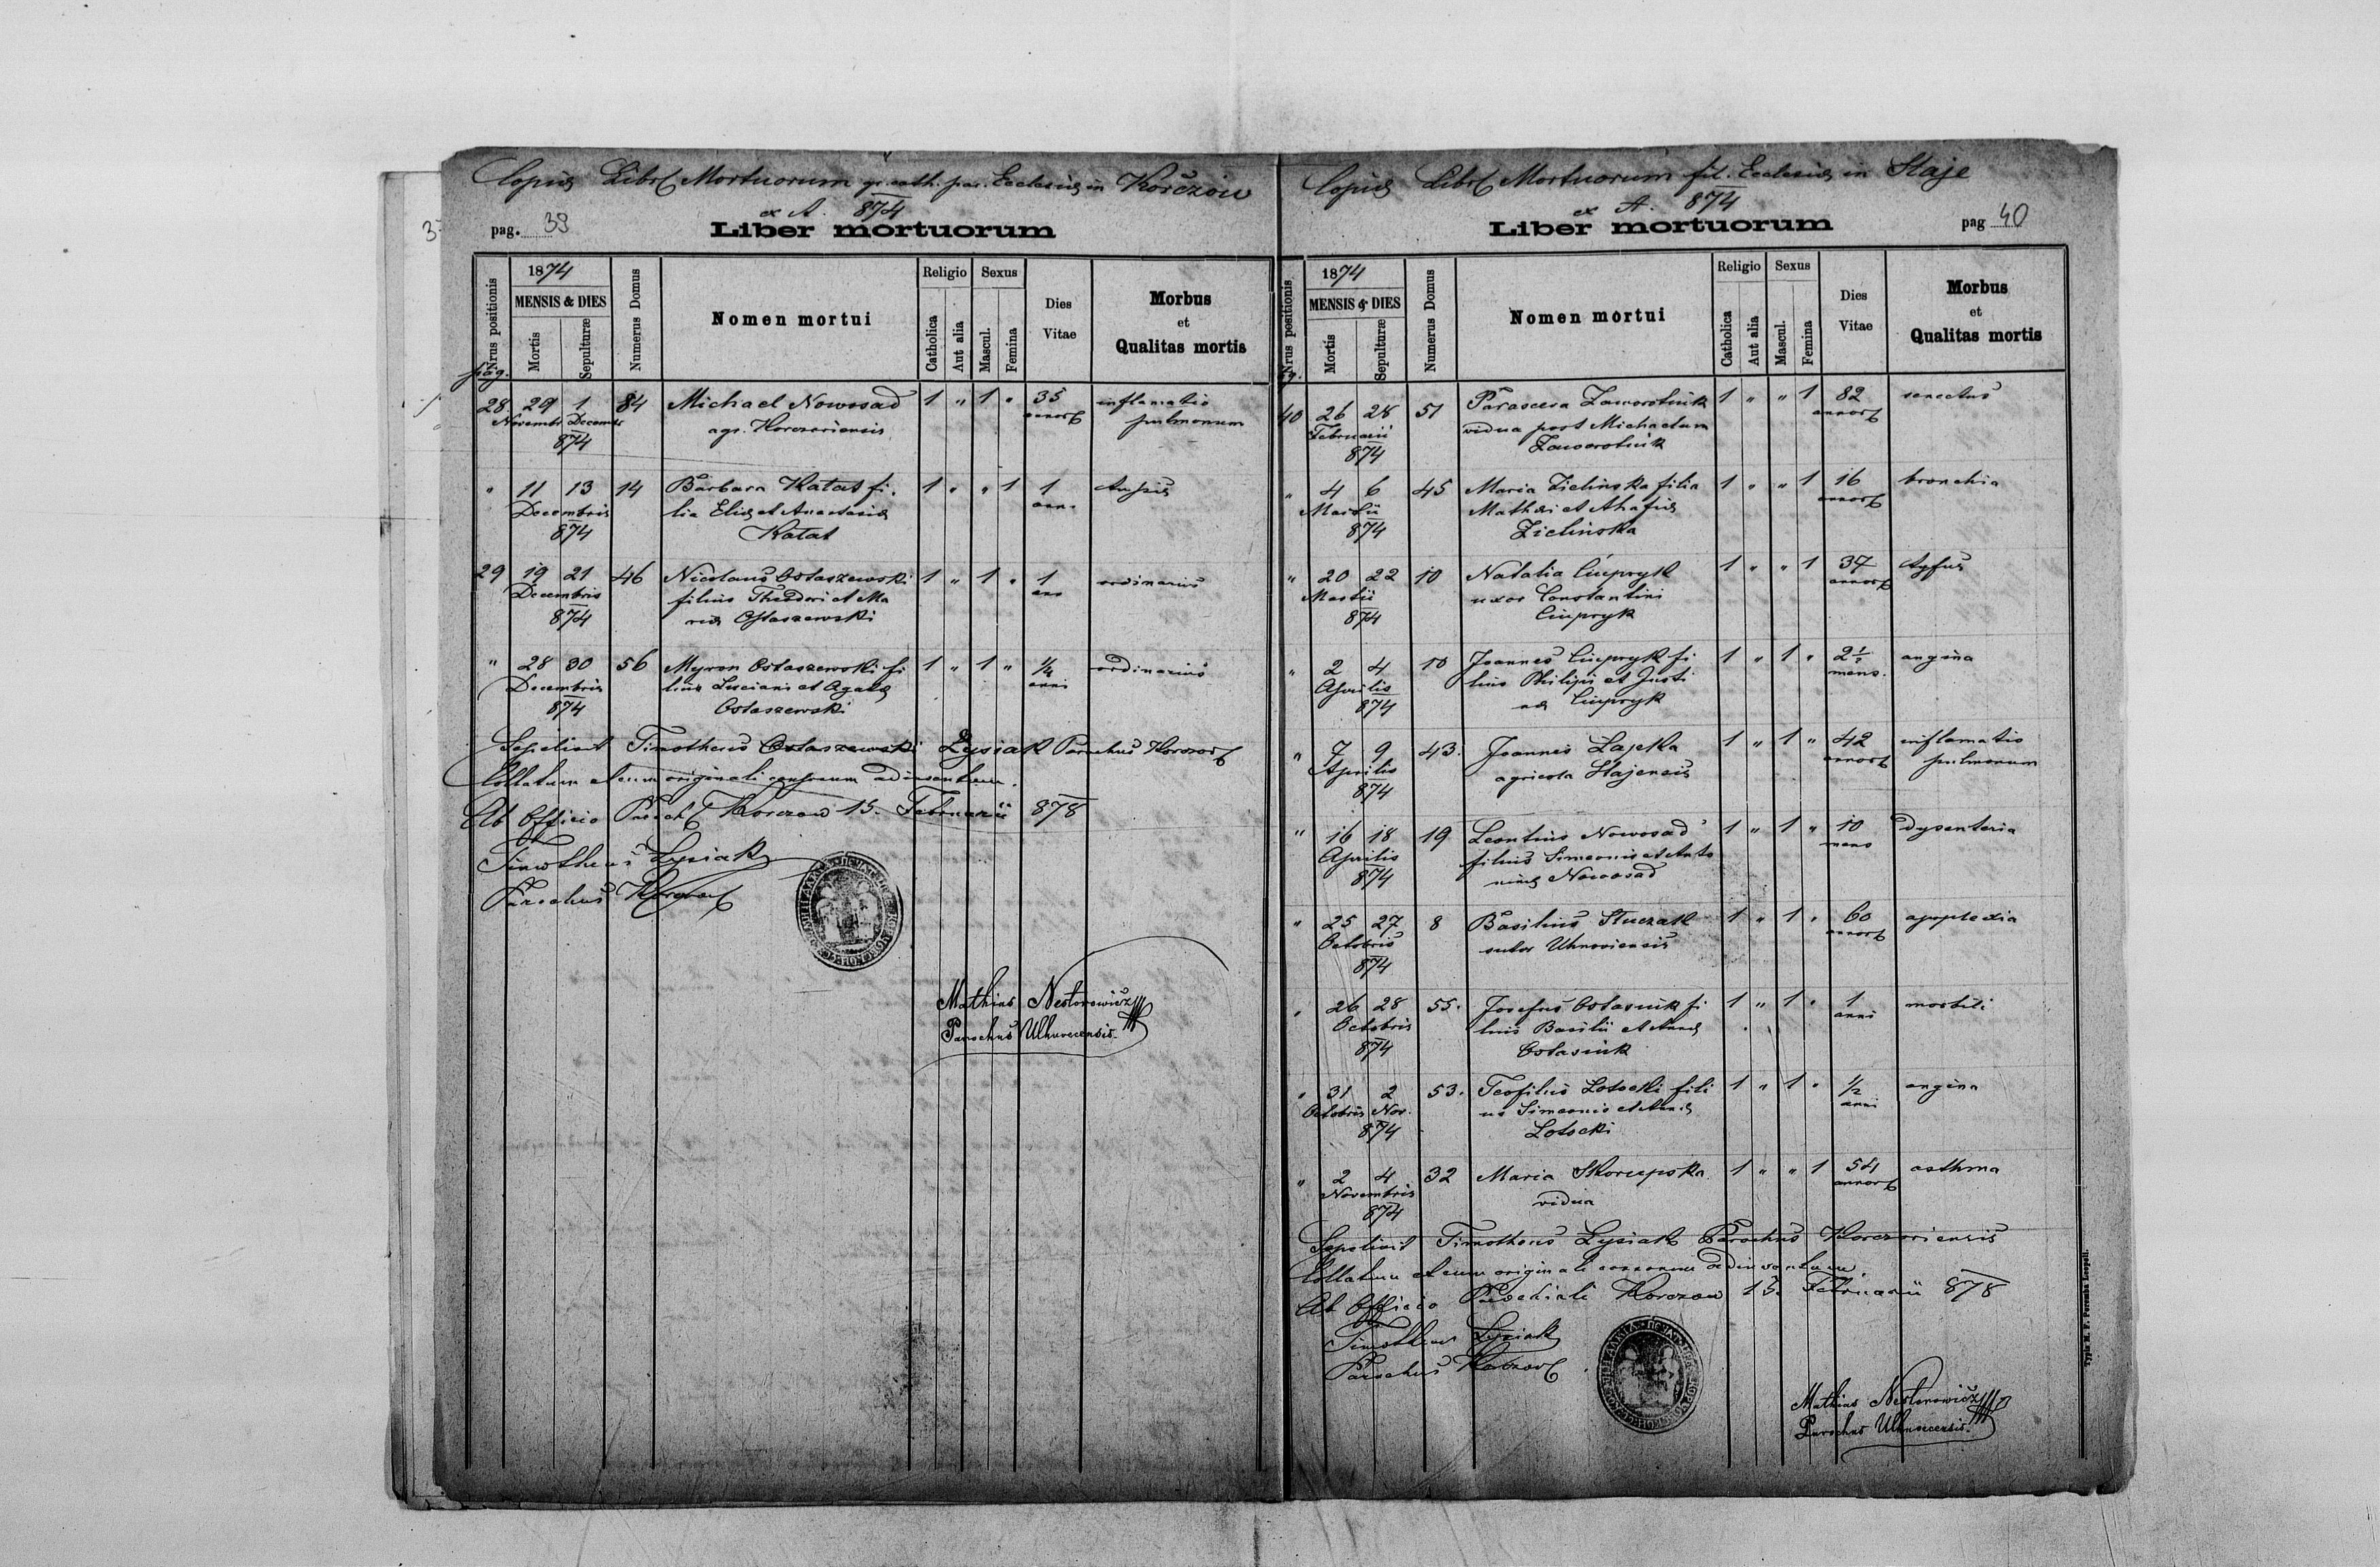 Copia Libri Mortuorum gr. cath. par. Ecclesiae in Korczów
ex A. 874
pag. 39
Liber mortuorum
Nrus positionis
1874
MENSIS & DIES
Mortis
Sepulturæ
Numerus Domus
Nomen mortui
Religio
Catholica
Aut alia
Sexus
Mascul.
Femina
Dies
Vitae
Morbus
et
Qualitas mortis
pag.
28 29 1 84 Michael Nowosad 1 " 1 " 35 inflamatio
Novembr Decembr agr. Korczoviensis annor pulmonum
874
" 11 13 14 Barbara Katat fi- 1 " " 1 1
Decembris lia Eliae et Anastasiae ann.
874 Katat
29 19 21 46 Nicolaus Ostaszewski 1 " 1 " 1 ordinarius
Decembris filius Theodori et Ma ann
874 riae Ostaszewski
" 28 30 56 Myron Ostaszewski fi 1 " 1 " 1/4 ordinarius
Decembris lius Luciani et Agatae anni
874 Ostaszewski
Sepelivit Timotheus Ostaszewski Łysiak Parochus Korczov
Collatum et cum originali
Ab Officio Paroch Korczow 15. Februarii 878
Timotheus Łysiak
Parochus Korczov
Mathias Nestorowicz
Parochus Uhnovecensis
Copia Libri Mortuorum fil. Ecclesiae in Staje
ex A. 874
Liber mortuorum
pag 40
Nrus positionis
1874
MENSIS & DIES
Mortis
Sepulturæ
Numerus Domus
Nomen mortui
Religio
Catholica
Aut alia
Sexus
Mascul.
Femina
Dies
Vitae
Morbus
et
Qualitas mortis
40 26 28 51 Parascea Zaworotniuk 1 " " 1 82 senectus
Februarii vidua post Michaelum annor
874 Zaworotniuk
" 4 6 45 Maria Zielinska filia 1 " " 1 16 bronchia
Martii Mathei et Ahafia annor
874 Zielinska
" 20 22 10 Natalia Ciupryk 1 " " 1 37 tyfus
Martii uxor Constantini annor
874 Ciupryk
" 2 4 10 Joannes Ciupryk fi 1 " 1 " 2½ angina
Aprilis lius Philipi et Justi mens.
874 nae Ciupryk
" 7 9 43. Joannes Łapka 1 " 1 " 42 inflamatio
Aprilis agricola Stajensis annor pulmonum
874
" 16 18 19 Leontius Nowosad 1 " 1 " 10 dysenteria
Aprilis filius Simeonis et Anto mens
874 ninae Nowosad
" 25 27 8 Basilius Stuczak 1 " 1 " 60 apoplexia
Octobris sutor Uhnoviensis annor
874
" 26 28 55. Josefus Ostasiuk fi 1 " 1 " 1 morbili
Octobris lius Basilii et Annae anni
874 Ostasiuk
" 31 2 53. Teofilus Lotocki fili 1 " 1 " 1/2 angina
Octobris Nov. us Simeonis et Annae anni
874 Lotocki
" 2 4 32 Maria Skorupska 1 " " 1 54 asthma
Novembris vidua annor
874
Sepelivit Timotheus Łysiak Parochus Korczoviensis
Collatum et cum originali
Ab Officio Parochiali Korczow 15. Februarii 878
Timotheus Łysiak
Parochus Korczov
Mathias Nestorowicz
Parochus Uhnovecensis
Typis H. F. Poremba Leopoli.